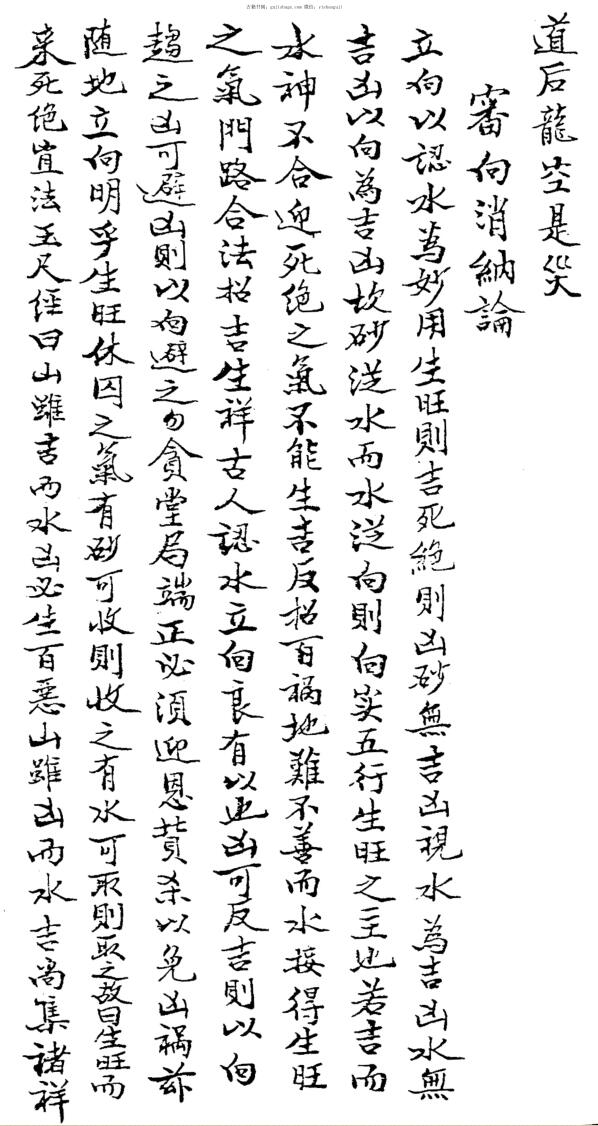 道后龍空是災
審向消納論
立向以認水為妙用生旺則吉死絶則凶砂無吉凶視水為吉凶水無
吉凶以向為吉凶故砂从水而水从向則向实五行生旺之主也若吉而
水神不合迎死绝之氣不能生吉反招百禍地雖不善而水接得生旺
之氣門路合法招吉生祥古人認水立向良有以也凶可反吉則以向
趨之凶可避凶則以向避之勿貪堂局端正必須迎恩
杀以免凶禍故
随地立向明乎生旺休囚之氣有砂可收則收之有水可取則取之故曰生旺而
来死绝宜法玉尺經曰山雖吉而水凶必生百惡山雖凶而水吉尚集諸祥